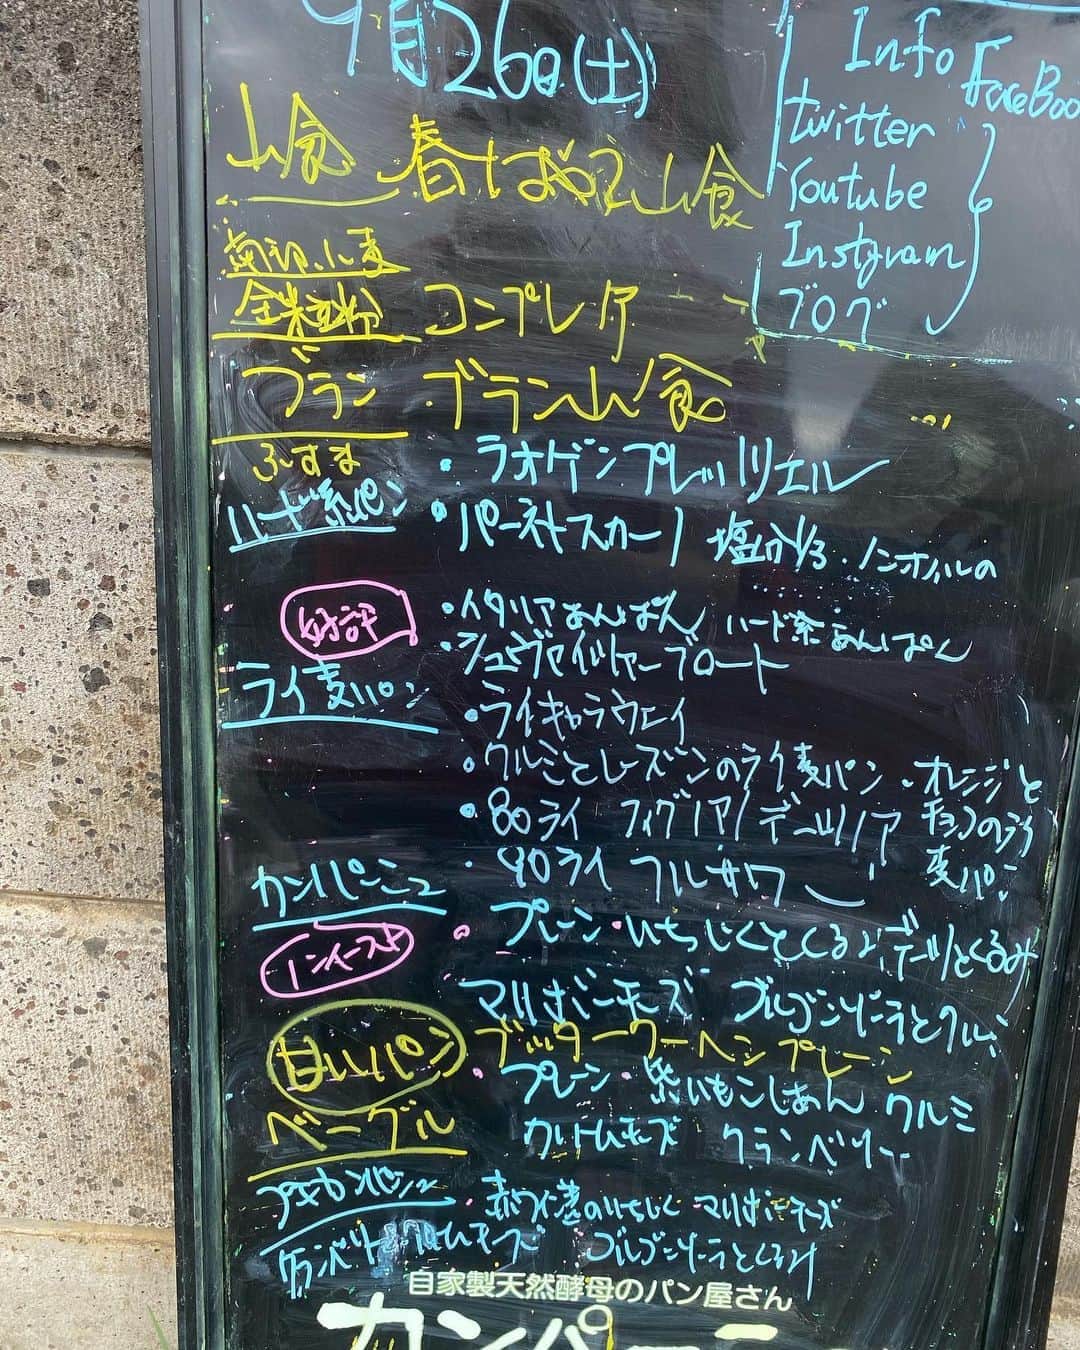 9月26日(土)
Info FaceBoo
twitter
Youtube
Instgram
ブログ
山食 春はやて山食
南部小麦
全粒粉 コンプレタ
ブラン ブラン山食
ふすま
・ラオゲンプレッツリエル
ハード系パン
・パーネトスカーノ 塩分1/3・ノンオイルの
好評
・イタリアあんぱん ハード系あんぱん
・シュヴァイツァーブロート
ライ麦パン
・ライキャラウェイ
・クルミとレーズンのライ麦パン ・オレンジと
チョコのライ
麦パン
・80ライ フィグノア/デーツノア
・90ライ フルサワー
カンパーニュ
・プレーン・いちじくとくるみ・デーツとくるみ
ノンイースト
マリボーチーズ ゴルゴンゾーラとクルミ
甘いパン ブッタークーヘン プレーン
・プレーン・紫いもこしあん クルミ
ベーグル
クリームチーズ クランベリー
プチカンパーニュ ・赤ワイン漬のいちじく マリボーチーズ
クランベリークリームチーズ ゴルゴンゾーラとくるみ
自家製天然酵母のパン屋さん
カンパーニュ